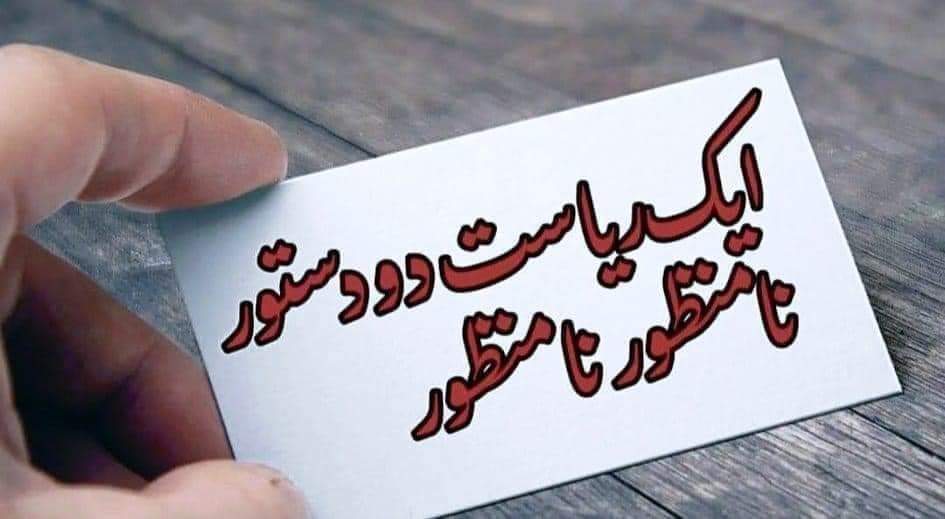 ایک ریاست دو دستور
نامنظور نامنظور